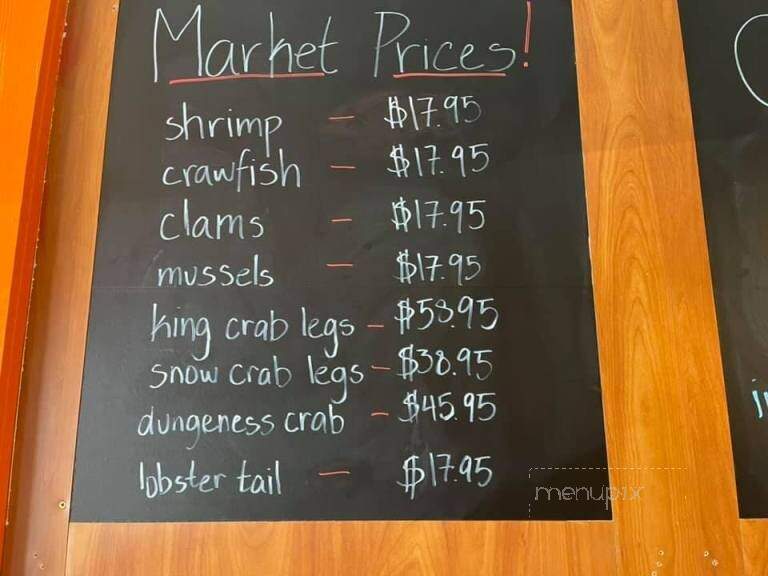 Market Prices!
shrimp - $17.95
crawfish - $17.95
clams - $17.95
mussels - $17.95
king crab legs - $58.95
snow crab legs - $38.95
dungeness crab - $45.95
lobster tail - $17.95
menupix